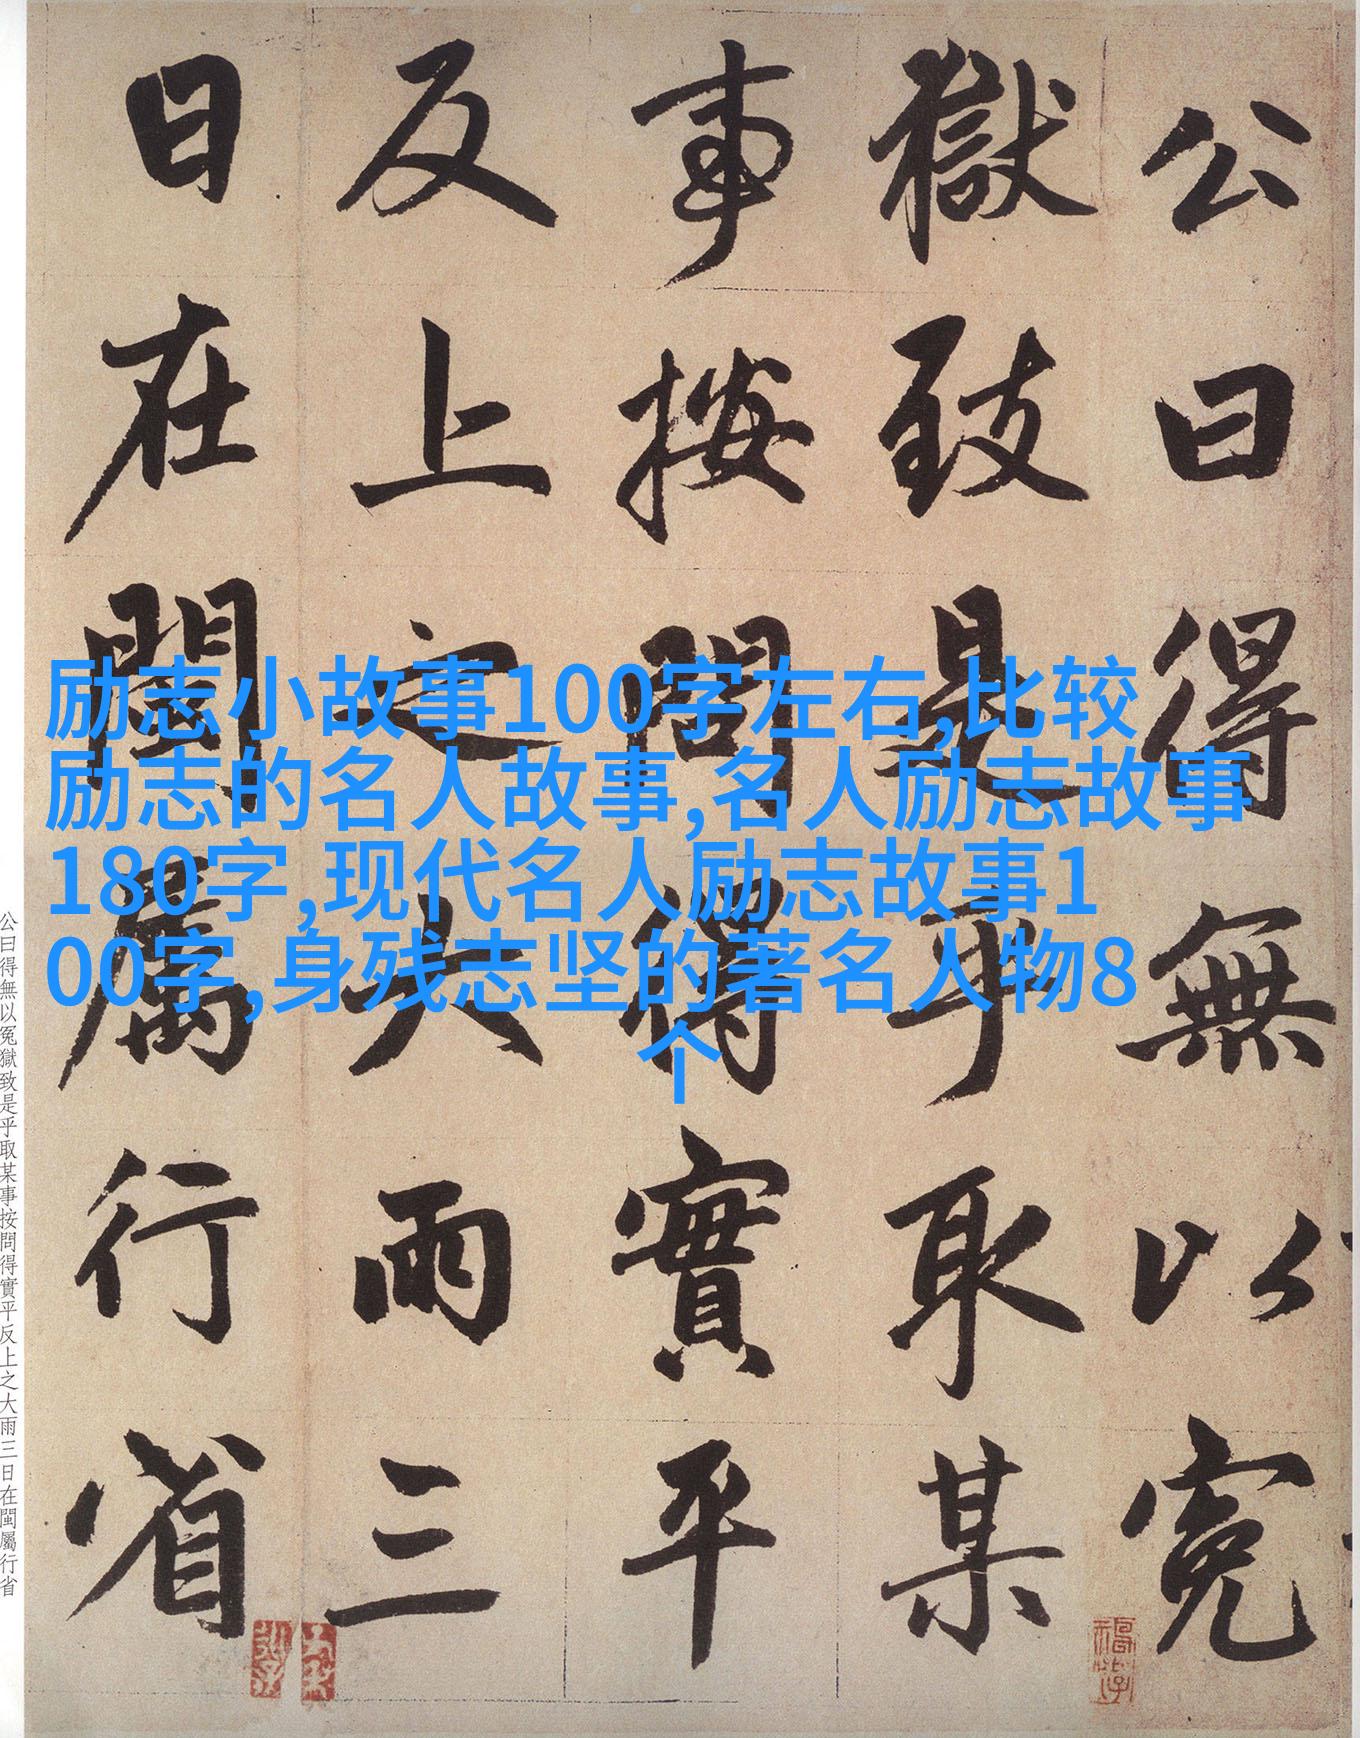 公曰得無以冤
獄致是乎取某
事按問得實平
反上之大雨三
日在閩屬行省
励志小故事100字左右,比较
励志的名人故事,名人励志故事
180字,现代名人励志故事1
00字,身残志坚的著名人物8
个
公曰得無以冤獄致是乎取某事按問得實平反上之大雨三日在閩屬行省